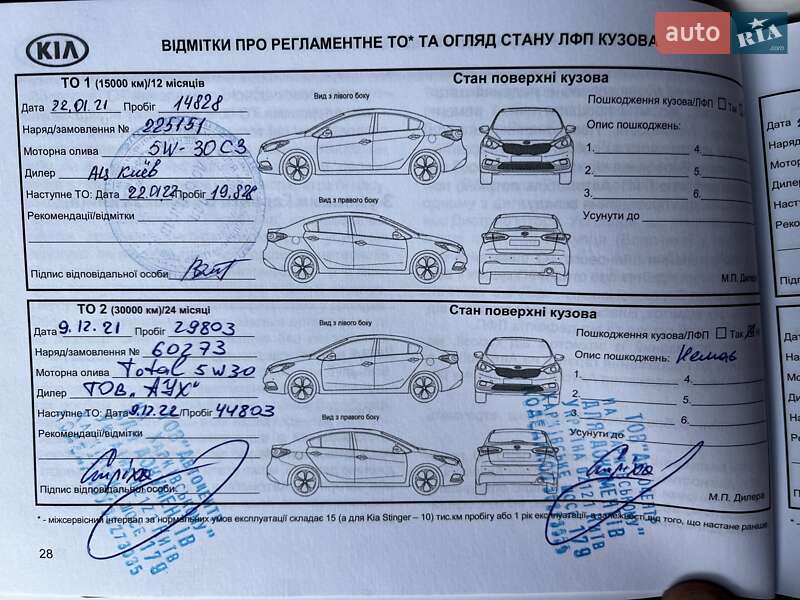 KIA
ВІДМІТКИ ПРО РЕГЛАМЕНТНЕ ТО* ТА ОГЛЯД СТАНУ ЛФП КУЗОВА
auto RIA .com
ТО 1 (15000 км)/12 місяців
Стан поверхні кузова
Дата 22.01.21 Пробіг 14828
Вид з лівого боку
Пошкодження кузова/ЛФП Так
Наряд/замовлення № 225151
Опис пошкоджень:
Моторна олива 5W-30 C3
1. 4.
Дилер АЦ Київ
2. 5.
Наступне ТО: Дата 22.01.22 Пробіг 19.828
3. 6.
Вид з правого боку
Рекомендації/відмітки
Усунути до
Підпис відповідальної особи
М.П. Дилера
ТО 2 (30000 км)/24 місяці
Стан поверхні кузова
Дата 9.12.21 Пробіг 29803
Вид з лівого боку
Пошкодження кузова/ЛФП Так
Наряд/замовлення № 60273
Опис пошкоджень: Немає
Моторна олива Total 5W30
1. 4.
Дилер ТОВ "АУХ"
2. 5.
Наступне ТО: Дата 9.12.22 Пробіг 44803
3. 6.
Вид з правого боку
Рекомендації/відмітки
Усунути до
Стріха
Стріха
Підпис відповідальної особи
М.П. Дилера
* - міжсервісний інтервал за нормальних умов експлуатації складає 15 (а для Kia Stinger – 10) тис.км пробігу або 1 рік експлуатації, в залежності від того, що настане раніше
28